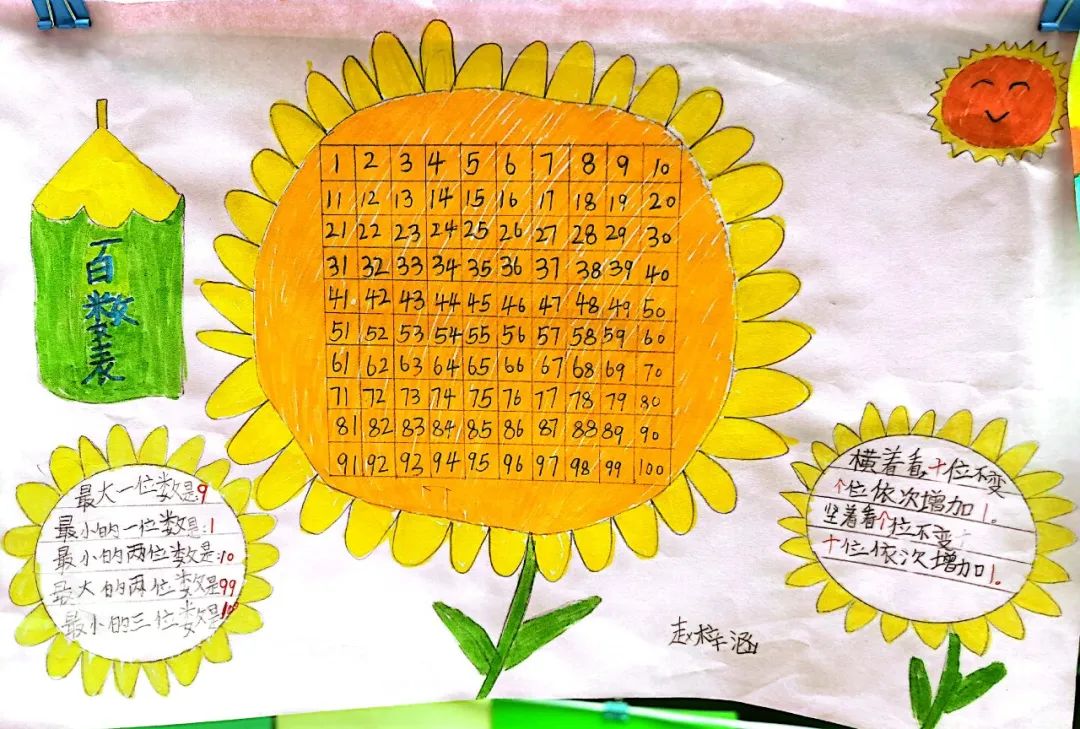 百数表
1 2 3 4 5 6 7 8 9 10
11 12 13 14 15 16 17 18 19 20
21 22 23 24 25 26 27 28 29 30
31 32 33 34 35 36 37 38 39 40
41 42 43 44 45 46 47 48 49 50
51 52 53 54 55 56 57 58 59 60
61 62 63 64 65 66 67 68 69 70
71 72 73 74 75 76 77 78 79 80
81 82 83 84 85 86 87 88 89 90
91 92 93 94 95 96 97 98 99 100
最大一位数是9
最小的一位数是:1
最小的两位数是:10
最大的两位数是99
最小的三位数是100
横着看十位不变
个位依次增加1。
坚着看个位不变
十位依次增加1。
赵梓涵